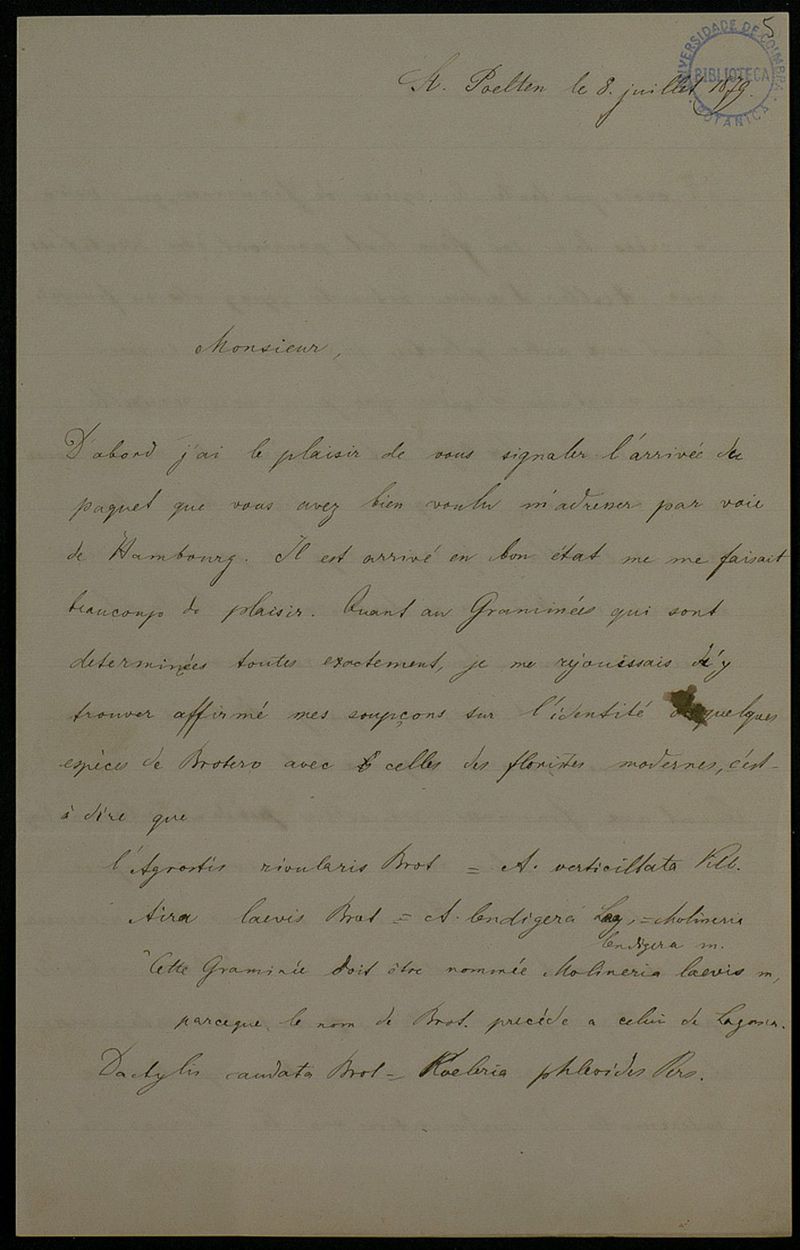 5
UNIVERSIDADE DE COIMBRA
BIBLIOTECA
BOTANICA
St. Poelten le 8. juillet 1879.
Monsieur,
D'abord j'ai le plaisir de vous signaler l'arrivée du
paquet que vous avez bien voulu m'adresser par voie
de Hambourg. Il est arrivé en bon état me me faisait
beaucoup de plaisir. Quant au Graminées qui sont
determinées toutes exactement, je me rejouissais d'y
trouver affirmé mes soupçons sur l'identité de quelques
espèces de Brotero avec celles des floristes modernes, c'est-
à dire que
l'Agrostis rivularis Brot = A. verticillata Vill.
Aira laevis Brot = A. lendigera Lag. = Molineria
lendigera m.
Cette Graminée doit être nominée Molineria laevis m,
parceque le nom de Brot. precéde a celui de Lagasca.
Dactylis caudata Brot = Koeleria phleoides Pers.